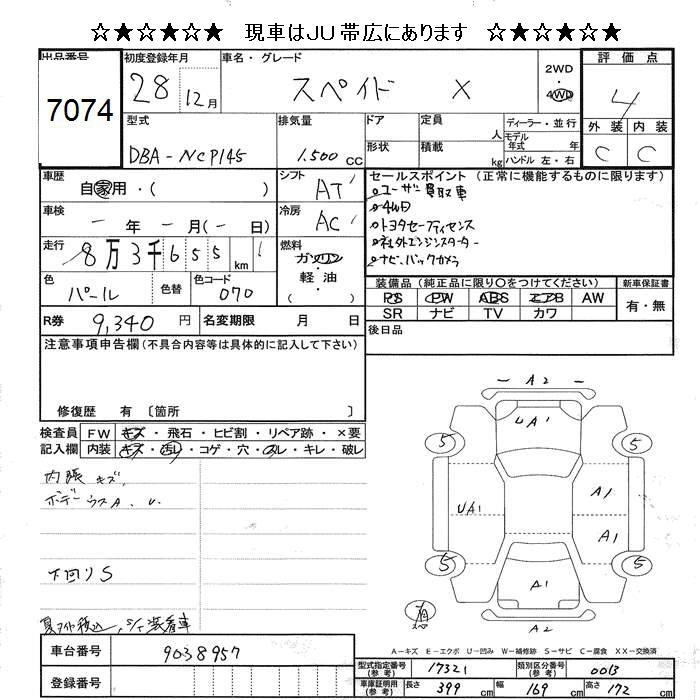 ☆★☆★☆★ 現車はJU帯広にあります ☆★☆★☆★
出品番号 初度登録年月 車名・グレード 2WD 評価点
7074 28 12月 スペイド X 4WD 4
型式 排気量 ドア 定員 人 ディーラー・並行 外装 内装
DBA-NCP145 1.500cc 形状 積載 kg モデル年式 年 ハンドル 左・右 C C
車歴 自家用・( ) シフト AT セールスポイント(正常に機能するものに限ります)
ユーザー買取車
車検 ー年ー月(ー日) 冷房 AC 4WD
トヨタセーフティセンス
走行 8万3千655km 燃料 ガソリン 社外エンジンスターター
軽油 ナビ、バックカメラ
( )
色 パール 色替 色コード 070 装備品(純正品に限り〇をつけてください) 新車保証書
PS PW ABS エアB AW 有・無
SR ナビ TV カワ
R券 9,340円 名変期限 月 日 後日品
注意事項申告欄(不具合内容等は具体的に記入して下さい)
修復歴 有 〔箇所 〕
検査員 FW キズ・飛石・ヒビ割・リペア跡・×要
記入欄 内装 キズ・汚レ・コゲ・穴・スレ・キレ・破レ
内張キズ
ボデーウスA、U
下回りS
夏タイヤ積込、S/T装着車
A2
UA1
5 5
UA1 A1
A1
5 5
A1
A2
A-キズ E-エクボ U-凹み W-補修跡 S-サビ C-腐食 XX-交換済
車台番号 9038957
登録番号
型式指定番号(参考) 17321 類別区分番号(参考) 0013
車庫証明用(参考) 長さ 399cm 幅 169cm 高さ 172cm